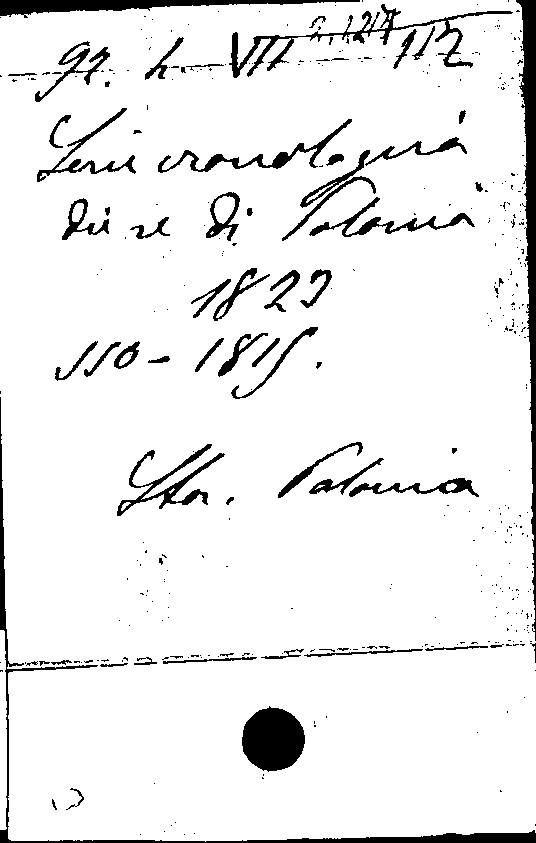 97. h. VII 117
Serie cronologica
dei re di Polonia
1823
550-1815.
Stor. Polonia